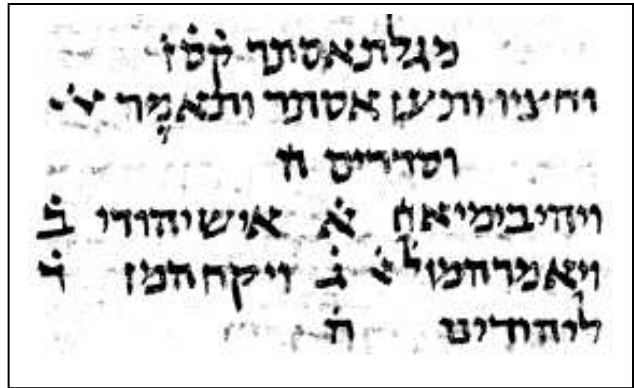 מגלת אסתר קסז
וחציו ותען אסתר ותאמר
וסדרים ה
ויהי בימי אח א איש יהודי ב
ויאמר המל ג ויקח המן ד
ליהודים ה